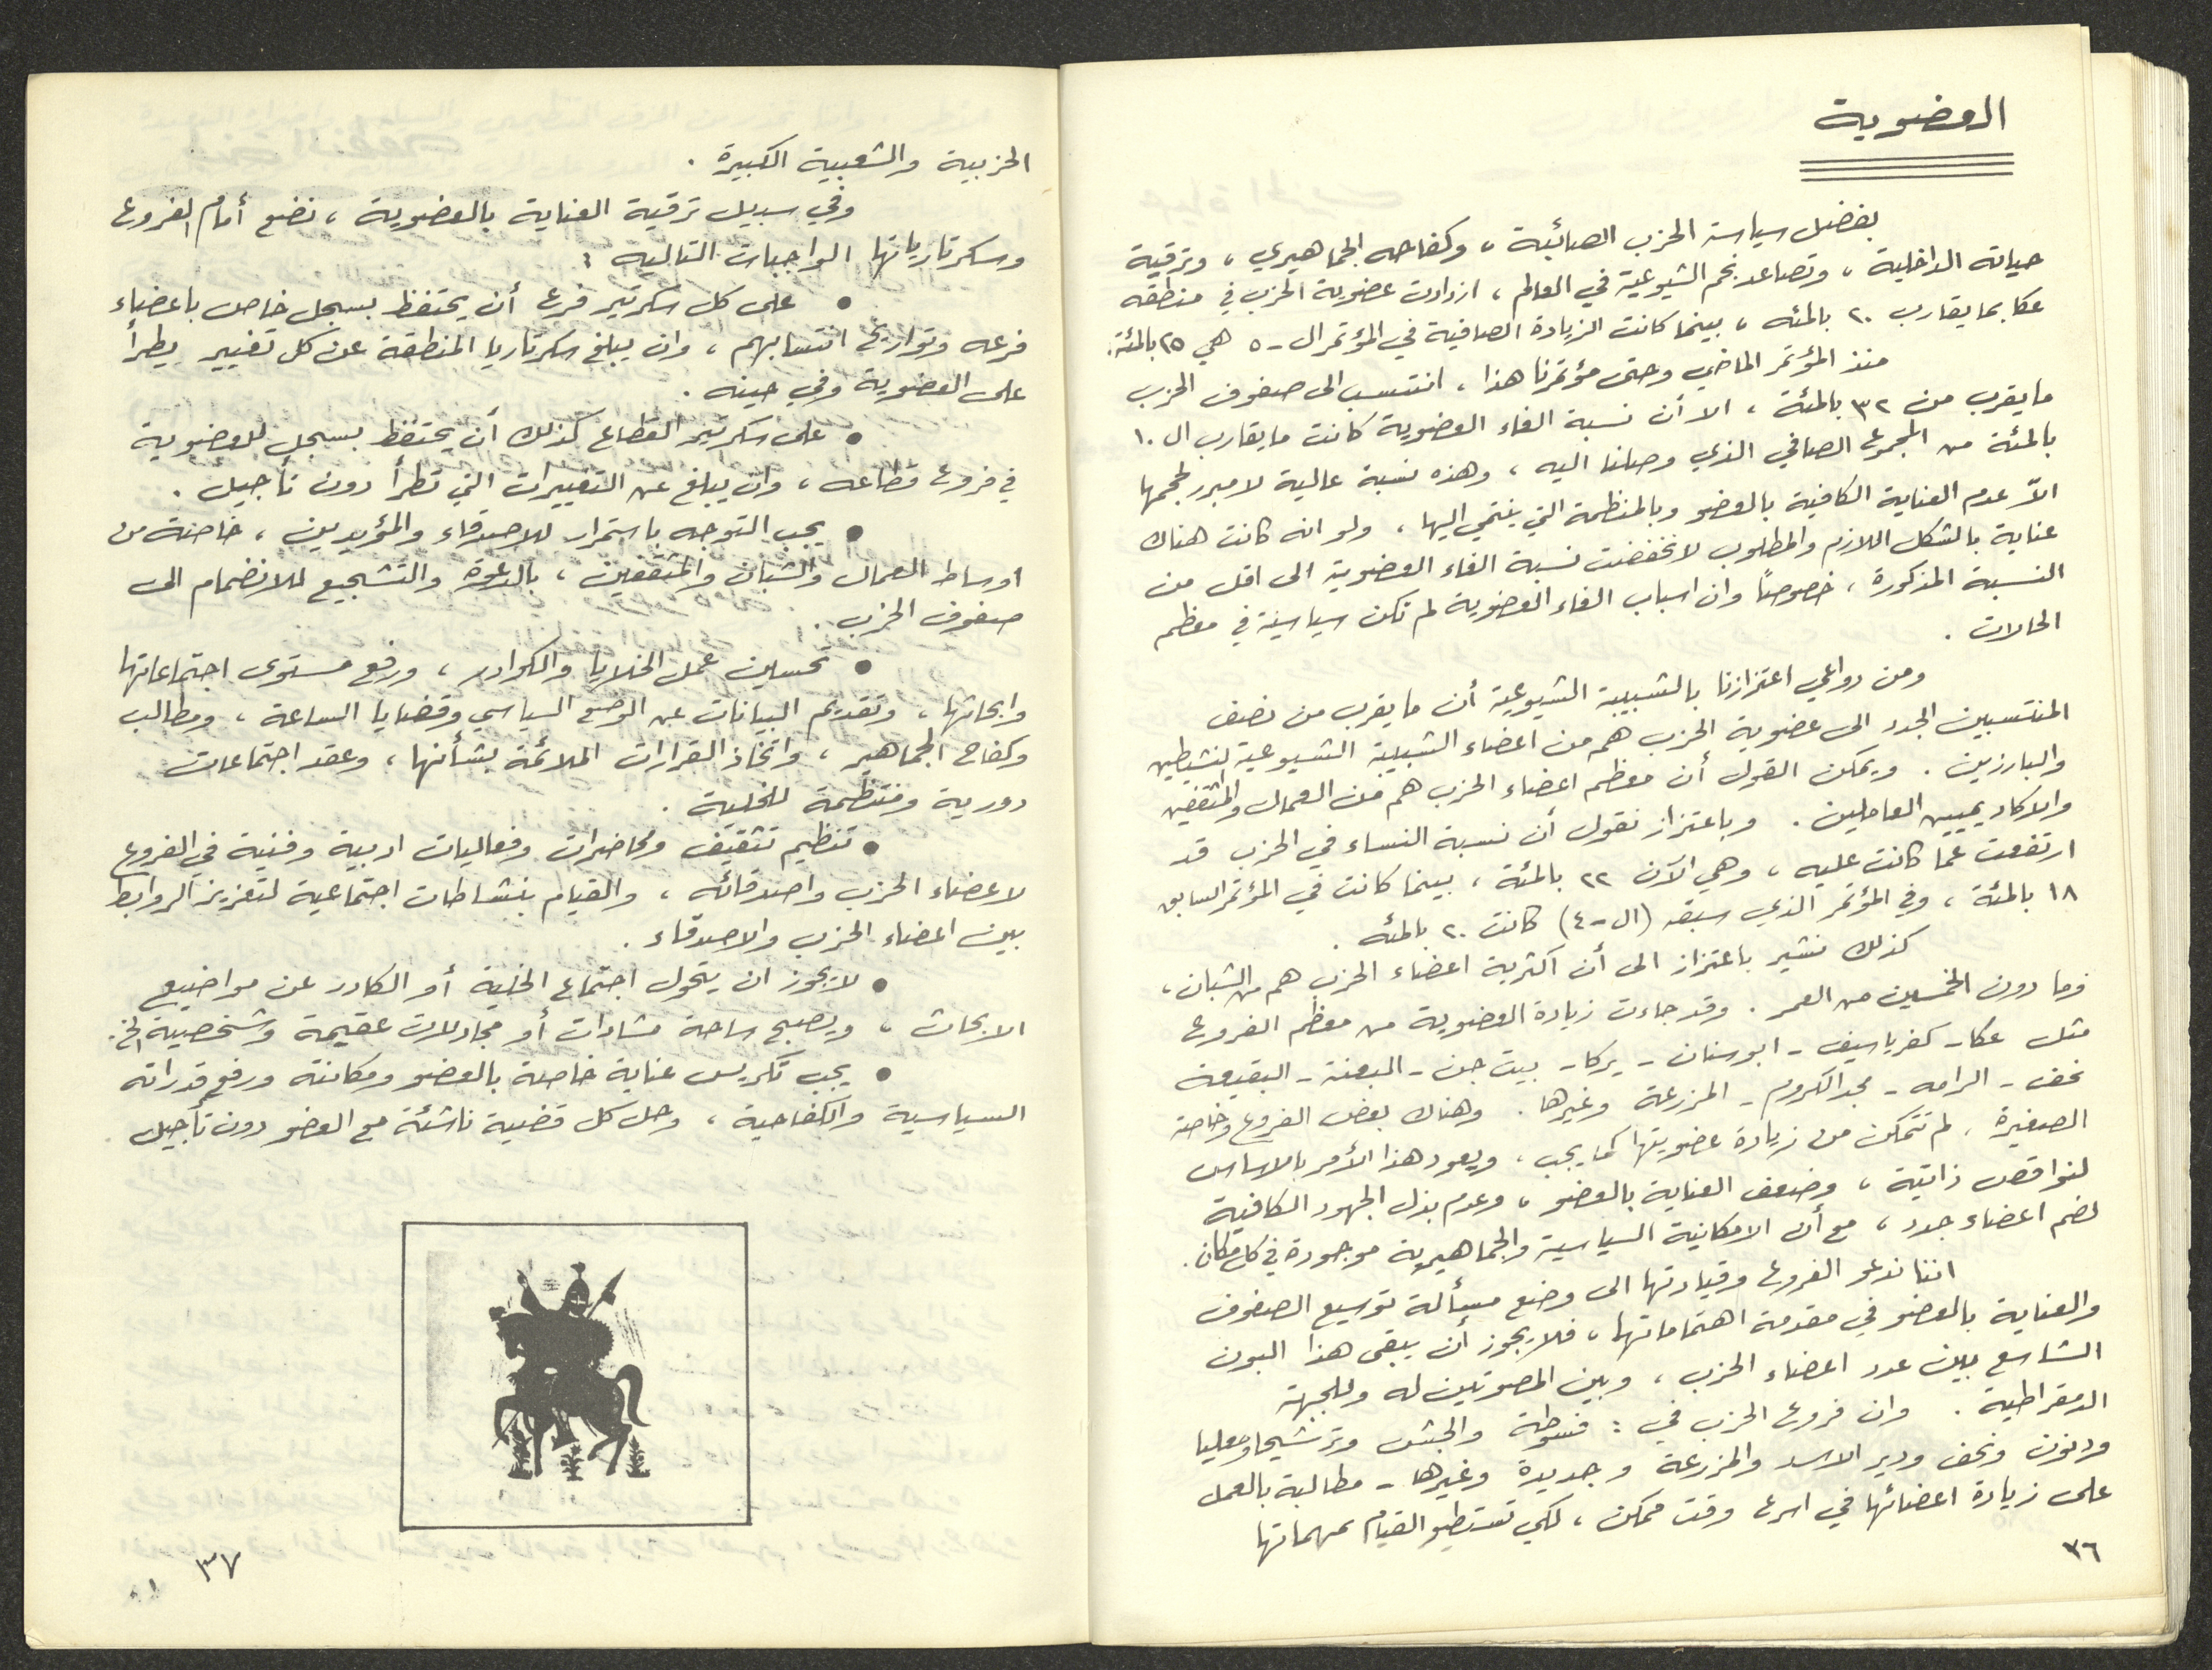 العضوية
بفضل سياسة الحزب الصائبة ، وكفاحه الجماهيري ، وترقية
حياته الداخلية ، وتصاعد نجم الشيوعية في العالم ، ازدادت عضوية الحزب في منطقة
عكا بما يقارب ٢٠ بالمئه ، بينما كانت الزيادة الصافية في المؤتمر ال - ٥ هي ٢٥ بالمئة .
منذ المؤتمر الماضي وحتى مؤتمرنا هذا ، انتسب الى صفوف الحزب
ما يقرب من ٣٢ بالمئة ، الا أن نسبة الغاء العضوية كانت ما يقارب ال ١٠
بالمئة من المجموع الصافي الذي وصلنا اليه ، وهذه نسبة عالية لا مبرر لحجمها
الاّ عدم العناية الكافية بالعضو وبالمنظمة التي ينتمي اليها ، ولو انه كانت هناك
عناية بالشكل اللازم والمطلوب لانخفضت نسبة الغاء العضوية الى اقل من
النسبة المذكورة ، خصوصًا وان اسباب الغاء العضوية لم تكن سياسية في معظم
الحالات .
ومن دواعي اعتزازنا بالشبيبة الشيوعية أن ما يقرب من نصف
المنتسبين الجدد الى عضوية الحزب هم من اعضاء الشبيبة الشيوعية النشيطين
والبارزين . ويمكن القول أن معظم اعضاء الحزب هم من العمال والمثقفين
والاكاديميين العاملين . وباعتزاز نقول أن نسبة النساء في الحزب قد
ارتفعت عما كانت عليه ، وهي الآن ٢٢ بالمئة ، بينما كانت في المؤتمر السابق
١٨ بالمئة ، وفي المؤتمر الذي سبقه (ال - ٤) كانت ٢٠ بالمئه .
كذلك نشير باعتزاز الى أن اكثرية اعضاء الحزب هم من الشبان ،
وما دون الخمسين من العمر . وقد جاءت زيادة العضوية من معظم الفروع
مثل عكا - كفرياسيف - ابوسنان - يركا - بيت جن - البعنة - البقيعة
نحف - الرامه - مجدالكروم - المزرعة وغيرها . وهناك بعض الفروع وخاصة
الصغيرة ، لم تتمكن من زيادة عضويتها كما يجب ، ويعود هذا الأمر بالاساس
لنواقص ذاتية ، وضعف العناية بالعضو ، وعدم بذل الجهود الكافية
لضم اعضاء جدد ، مع أن الامكانية السياسية والجماهيرية موجودة في كل مكان .
اننا ندعو الفروع وقيادتها الى وضع مسألة توسيع الصفوف
والعناية بالعضو في مقدمة اهتماماتها ، فلا يجوز أن يبقى هذا البون
الشاسع بين عدد اعضاء الحزب ، وبين المصوتين له وللجبهة
الدمقراطية . وان فروع الحزب في : فسوطة والجش وترشيحا ومعليا
ودنون ونحف ودير الاسد والمزرعة و جديدة وغيرها - مطالبة بالعمل
على زيادة اعضائها في اسرع وقت ممكن ، لكي تستطيع القيام بمهماتها
٣٦
الحزبية والشعبية الكبيرة .
وفي سبيل ترقية العناية بالعضوية ، نضع أمام الفروع
وسكرتارياتها الواجبات التاليه :
• على كل سكرتير فرع أن يحتفظ بسجل خاص باعضاء
فرعه وتواريخ انتسابهم ، وان يبلغ سكرتاريا المنطقة عن كل تغيير يطرأ
على العضوية وفي حينه .
• على سكرتير القطاع كذلك أن يحتفظ بسجل للعضوية
في فروع قطاعه ، وان يبلغ عن التغييرات التي تطرأ دون تأجيل .
• يجب التوجه باستمرار للاصدقاء والمؤيدين ، خاصة من
اوساط العمال والشبان والمثقفين ، بالدعوة والتشجيع للانضمام الى
صفوف الحزب .
• تحسين عمل الخلايا والكوادر ، ورفع مستوى اجتماعاتها
وابحاثها ، وتقديم البيانات عن الوضع السياسي وقضايا الساعة ، ومطالب
وكفاح الجماهير ، واتخاذ القرارات الملائمة بشأنها ، وعقد اجتماعات
دورية ومنتظمة للخلية .
• تنظيم تثقيف ومحاضرات وفعاليات ادبية وفنية في الفروع
لاعضاء الحزب واصدقائه ، والقيام بنشاطات اجتماعية لتعزيز الروابط
بين اعضاء الحزب والاصدقاء .
• لا يجوز ان يتحول اجتماع الخلية أو الكادر عن مواضيع
الابحاث ، ويصبح ساحة مشادات أو مجادلات عقيمة وشخصية الخ .
• يجب تكريس عناية خاصة بالعضو ومكانته ورفع قدراته
السياسية والكفاحية ، وحل كل قضية ناشئة مع العضو دون تأجيل .
٣٧